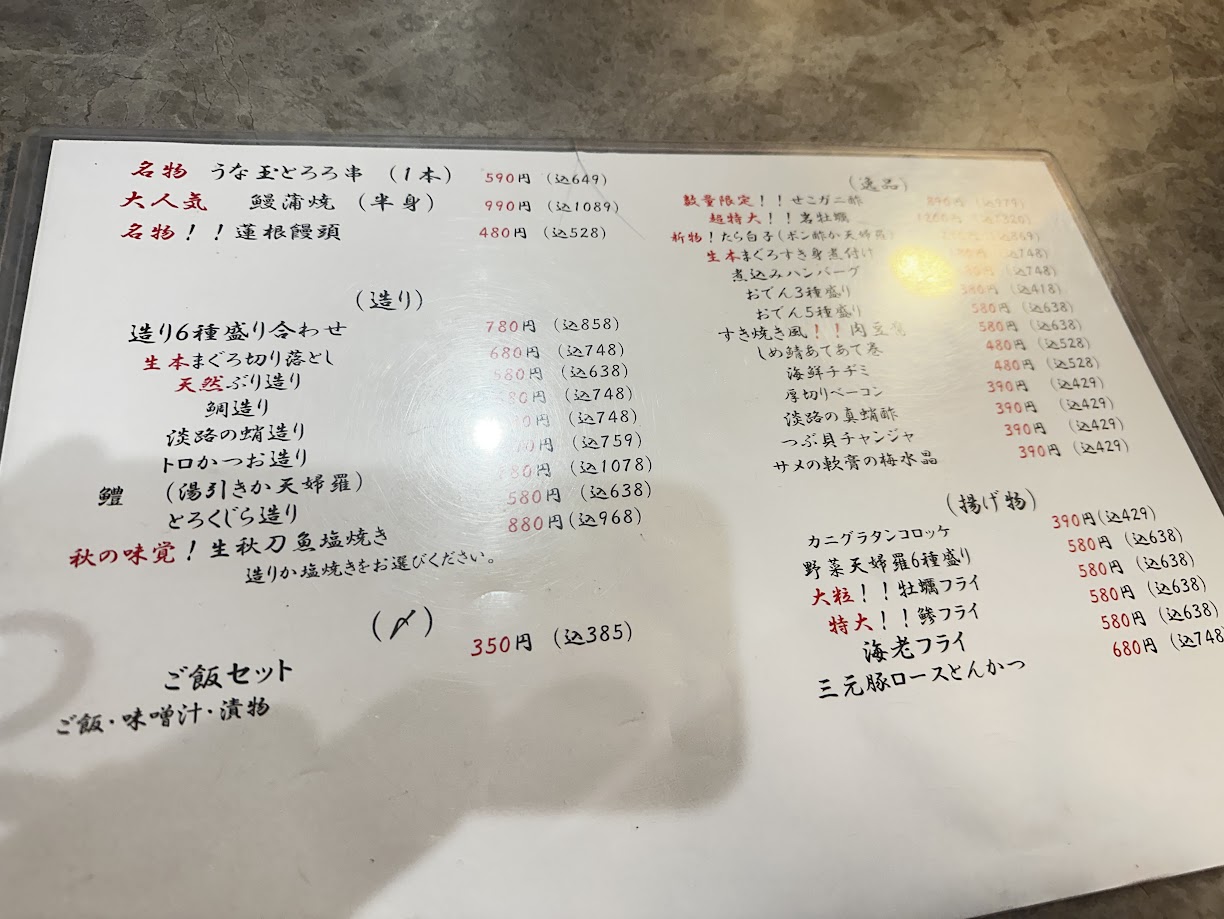 名物 うな玉とろろ串 (1本) 590円 (込649)
大人気 鰻蒲焼 (半身) 990円 (込1089)
名物！！蓮根饅頭 480円 (込528)
(造り)
造り6種盛り合わせ 780円 (込858)
生本まぐろ切り落とし 680円 (込748)
天然ぶり造り 580円 (込638)
鯛造り 80円 (込748)
淡路の蛸造り 円 (込748)
トロかつお造り 円 (込759)
鱧 (湯引きか天婦羅) 80円 (込1078)
とろくじら造り 580円 (込638)
秋の味覚！生秋刀魚塩焼き 880円 (込968)
造りか塩焼きをお選びください。
(〆)
ご飯セット 350円 (込385)
ご飯・味噌汁・漬物
(逸品)
数量限定！！せこガニ酢 890円 (込979)
超特大！！牡蠣 1200円 (込1320)
新物！たら白子(ポン酢か天婦羅) 円 (込869)
生本まぐろすき身煮付け 80円 (込748)
煮込みハンバーグ 80円 (込748)
おでん3種盛り 380円 (込418)
おでん5種盛り 580円 (込638)
すき焼き風！！肉豆腐 580円 (込638)
しめ鯖あてあて巻 480円 (込528)
海鮮チヂミ 480円 (込528)
厚切りベーコン 390円 (込429)
淡路の真蛸酢 390円 (込429)
つぶ貝チャンジャ 390円 (込429)
サメの軟膏の梅水晶 390円 (込429)
(揚げ物)
カニグラタンコロッケ 390円 (込429)
野菜天婦羅6種盛り 580円 (込638)
大粒！！牡蠣フライ 580円 (込638)
特大！！鯵フライ 580円 (込638)
海老フライ 580円 (込638)
三元豚ロースとんかつ 680円 (込748